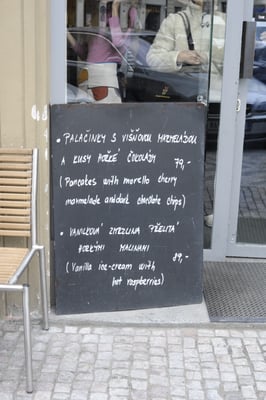 • PALAČINKY S VIŠŇOVOU MARMELÁDOU
A KUSY HOŘKÉ ČOKOLÁDY 79,-
(Pancakes with morello cherry
marmelade and dark chocolate chips)
• VANILKOVÁ ZMRZLINA PŘELITÁ
HORKÝMI MALINAMI 89,-
(Vanilla ice-cream with
hot raspberries)